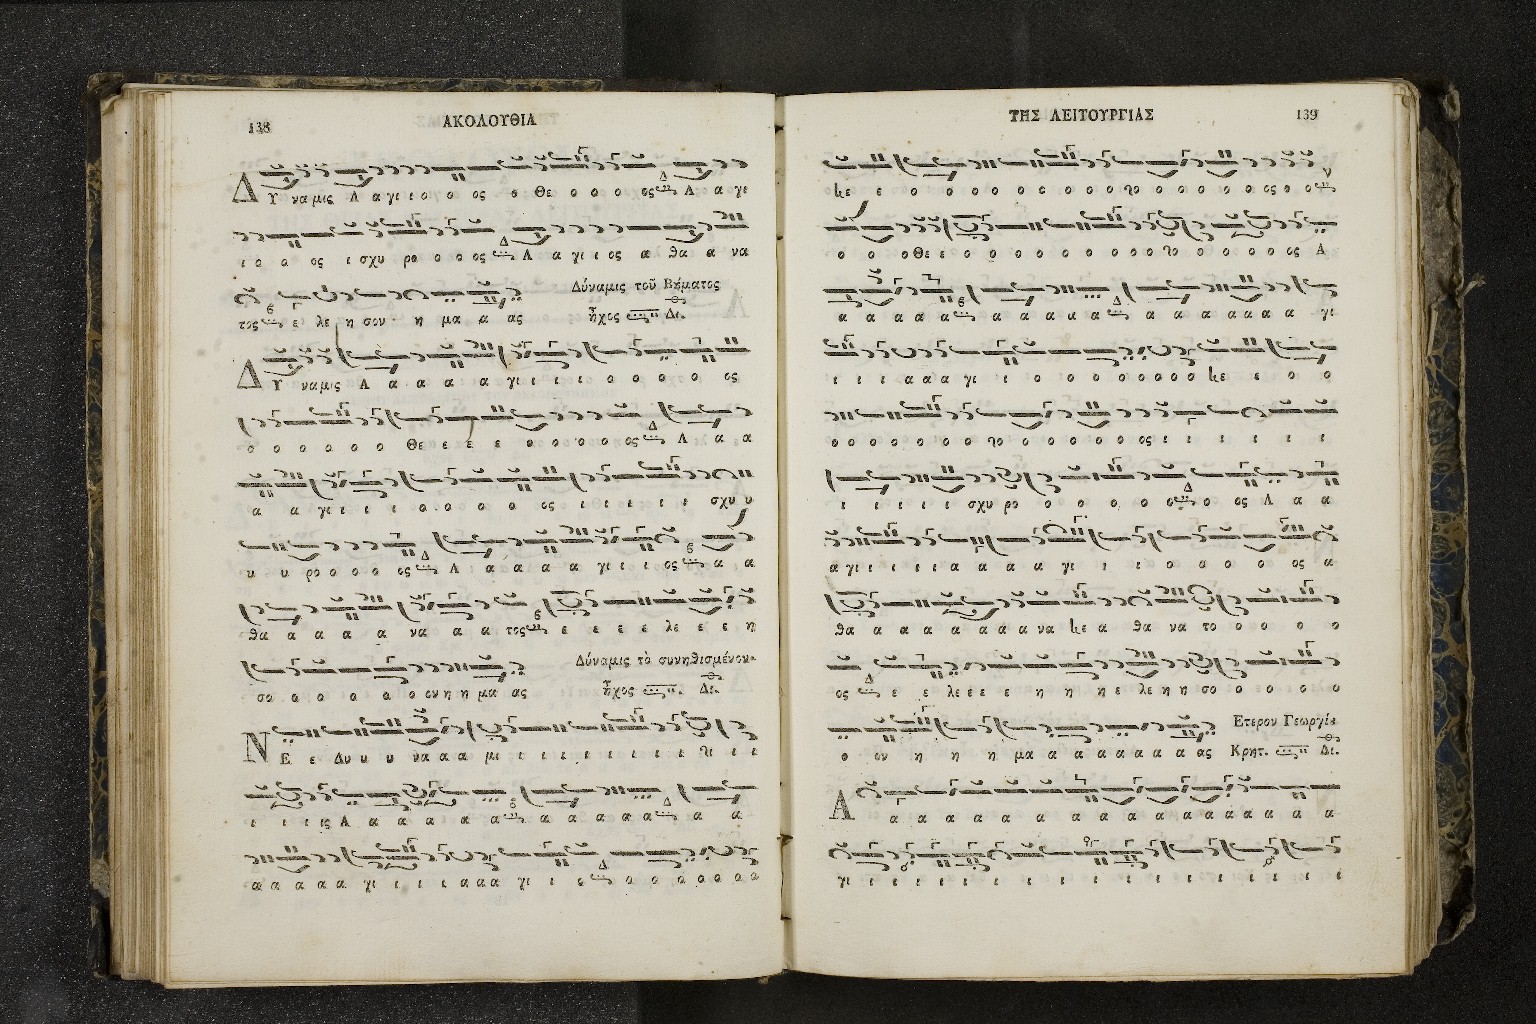 138
ΑΚΟΛΟΥΘΙΑ
Δ Υ ναμις Α α γι ι ο ο ος ο Θε ο ο ο ος Α α γι
ι ο ο ος ι σχυ ρο ο ο ος Α α γι ι ος α θα α να
Δύναμις τοῦ Βήματος
τος ε λε η σον η μα α ας ἦχος Δι.
Δ Υ ναμις Α α α α α γι ι ι ι ο ο ο ο ος
ο ο ο ο ο ο Θε ε ε ε ο ο ο ο ο ος Α α α
α α γι ι ι ι ο ο ο ο ος ι ι ι ι ι σχυ υ
υ υ ρο ο ο ο ος Α α α α α γι ι ι ος α α
θα α α α α να α α τος ε ε ε ε λε ε ε η
Δύναμις τὸ συνηθισμένον.
σο ο ο ο ο ο ο ον η η μα ας ἦχος Δι.
Ν Ε ε Δυ υ υ να α α μι ι ι ι ι ι ι ι χι ι ι
ι ι ι ις Α α α α α α α α α α α α α
α α α α α γι ι ι ι α α α γι ι ο ο ο ο ο ο ο ο
ΤΗΣ ΛΕΙΤΟΥΡΓΙΑΣ
139
κε ε ο ο ο ο ο ο ο ο ο χο ο ο ο ο ο ος ο ο
ο ο ο Θε ε ο ο ο ο ο ο ο ο ο ο χο ο ο ο ο ος Α
α α α α α α α α α α α α α α α α γι
ι ι ι α α α γι ι ο ο ο ο ο ο ο ο κε ε ο ο
ο ο ο ο ο ο ο χο ο ο ο ο ο ο ος ι ι ι ι ι ι
ι ι ι ι ι σχυ ρο ο ο ο ο ο ο ος Α α α
α γι ι ι ι ι α α α α γι ι ι ο ο ο ο ος α
θα α α α α α α α να κε α θα να το ο ο ο ο
ος ε ε λε ε ε ε η η η ε λε η η σο ο ο ο ο
Ετερου Γεωργίου
ο ον η η η μα α α α α α α α ας Κρητ. Δι.
Α α α α α α α α α α α α α α α α
γι ι ι ι ι ι ι ι ι ι ι ι ι ι ι ι